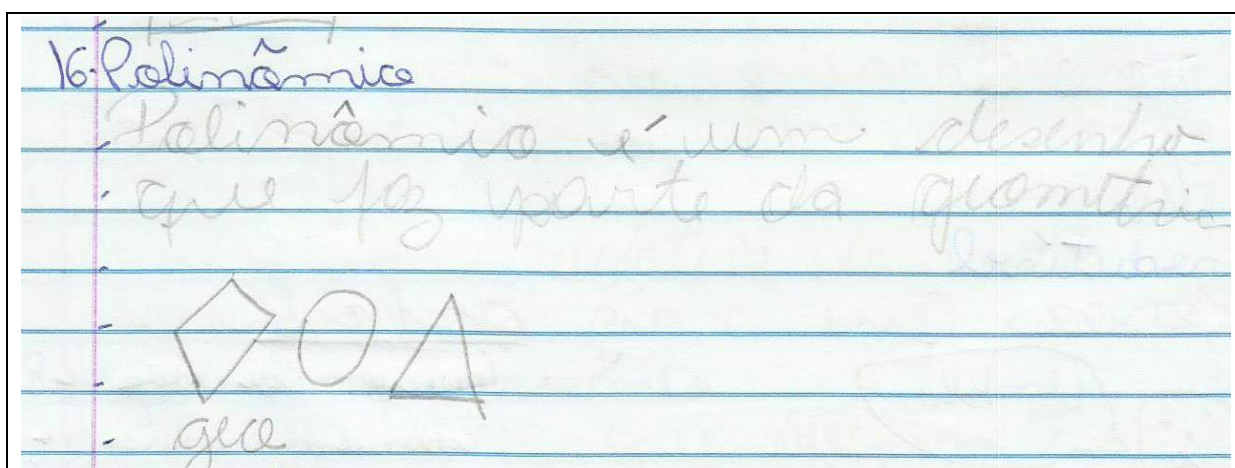 16-Polinômico
Polinômio é um desenho
que faz parte da geometria
geo